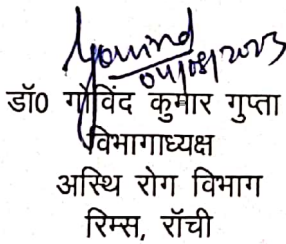 Govind
04/08/2023
डॉ0 गोविंद कुमार गुप्ता
विभागाध्यक्ष
अस्थि रोग विभाग
रिम्स, राँची